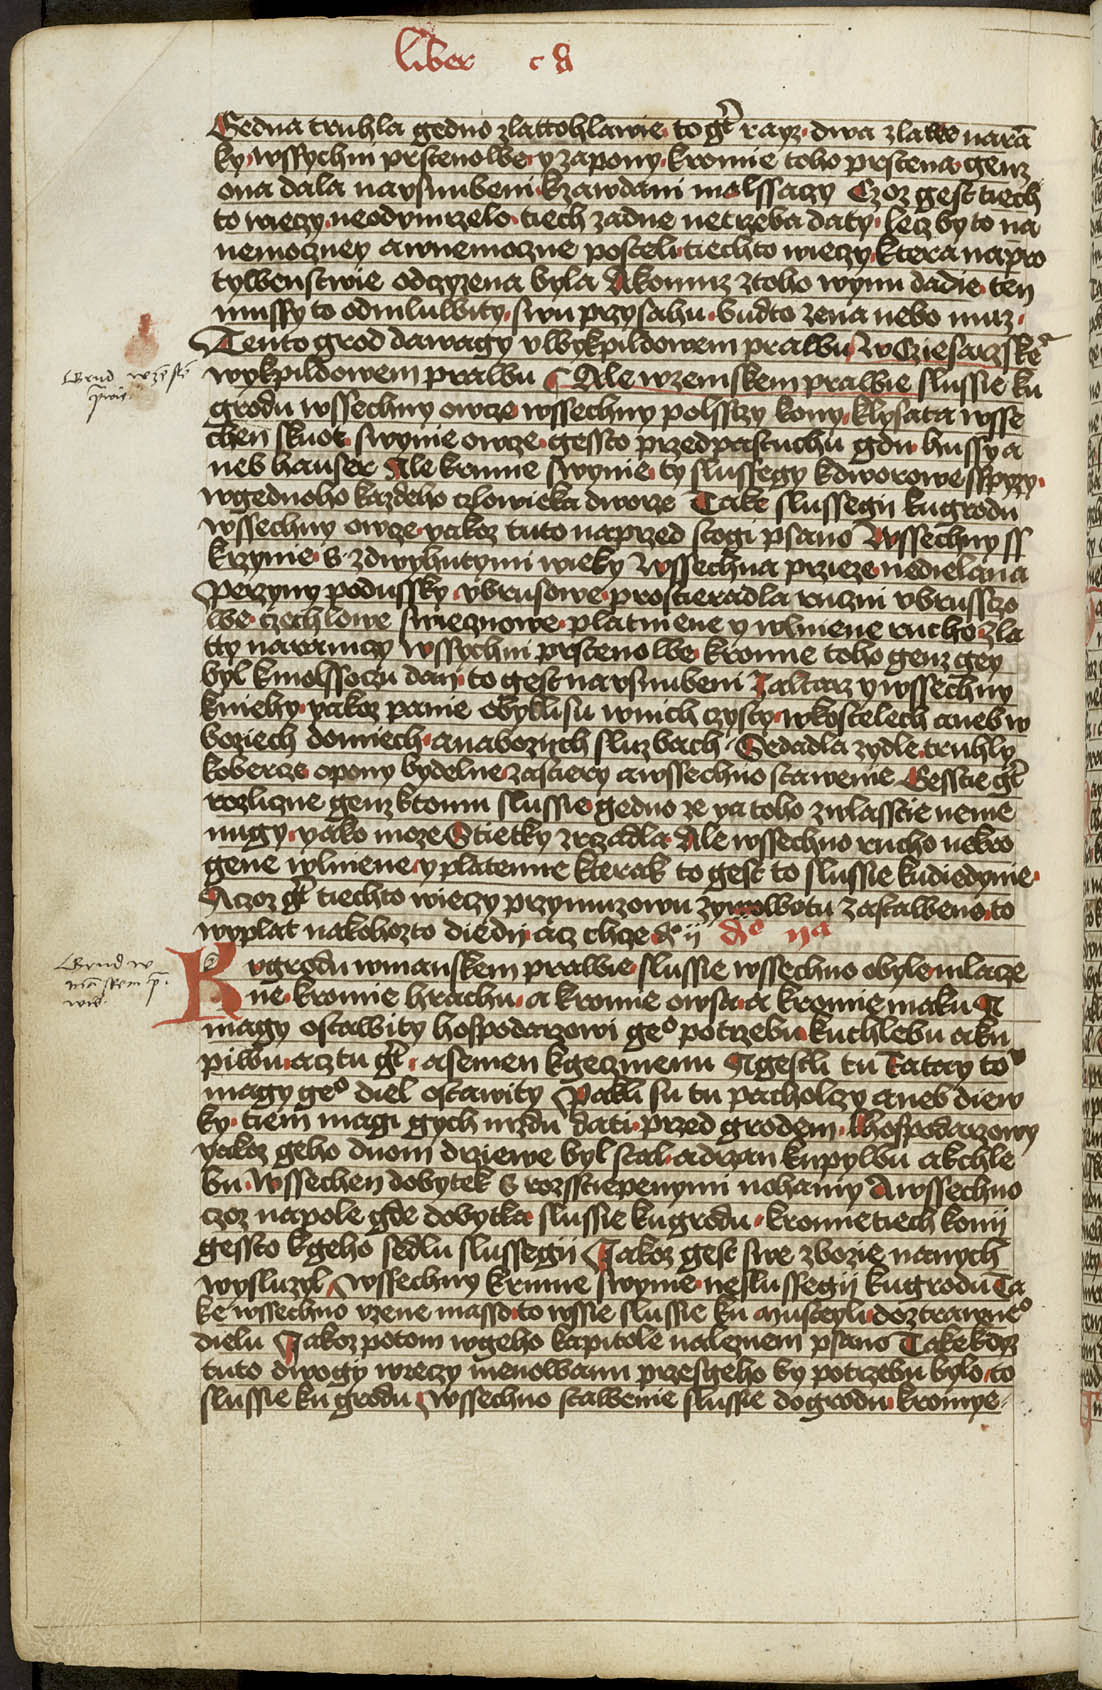 liber c d
Gedna truhla gedno zlattohlawie to gt rayz dwa zlatte narā
ky wssychni prstenowe y zapony kromie toho prstena genz
ona dala na vsnubeni k zawdani malssaczy Czoz gest tiech
to wieczy neodumrzelo tiech zadne netrzeba daty lecz by to na
nemoczney a w nemoczne posteli tiechto wieczy ktera na pro
tywenstwie odczyzena byla A komuz z toho wynu dadie ten
mussy to odmluwity swu przysahu budto zena nebo muz
Tento grod dawagy v wykpildowem prawu W Cziesarzske
wykpildowem prawu Ale w zemskem prawie slussie ku
Grud w zēskē
praw
grodu wssechny owcze wssechny polssczy kony klysata wsse
chen skuot swynie owcze gessto przed pastuchu gdu hussy a
neb hauser Ale krmne swynie ty slussegy k dworowe sspyzy
w gednoho kazdeho czlowieka dworze Take slussegij ku grodu
wssechny owcze yakoz tuto naprzed stogi psano Wssechny ss
krzynie s zdwyhutymi wieky Wssechna przieze nedielana
Perzyny podussky vbrusowe prostieradla ruczni vbrussczo
we czechlowe swiecznowe platniene y wlniene rucho zla
tty naramczy wssychni prstenowe kromie toho genz gey
byl k molssoczu dan to gest na vsnubeni Zaltarz y wssechny
kniehy yakoz panie obykli su w nich czysty w kostelech aneb w
boziech domiech a na bozijch sluzbach Sedadla zydle truhly
koberze opony bydelne zastiery a wssechno stawenie Gesstie gt
rozliczne genz k tomu slussie gedno ze ya toho zwlasscie neme
nugy yako moze Sstietky zrzadla Ale wssechno rucho nekro
gene wlniene y platenne kterak to gest to slussie ku diedynie
Aczoz gt tiechto wieczy przy muzowu zywotu zastaweno to
wyplat na kohozto diedij acz chcze dc ij
Grud w
manskem p
wie
K v grodu w manskem prawie slussie wssechno obyle mlacze
ne kromie hrachu a kromie owsa a kromie maku A
magy ostawity hospodarzowi geo potrzebu ku chlebu a ku
piwu acz tu gt a semen k geczmenu A gestli tu Tatary to
magy geo diel ostawity Pakli su tu pacholczy aneb diew
ky tiem magi gych mzdu dati przed grodem A hospodarzowy
yakoz geho duom drziewe byl stal a drzan ku pywu a k chle
bu Wssechen dobytek s rozsstiepenymi nohamy A wssechno
czoz na pole gde dobytka slussie ku grodu kromie tiech konij
gessto k geho sedlu slussegij Jakoz gest swe zbozie na nych
wysluzyl Wssechny krmne swynie ne slussegij ku grodu Ta
ke wssechno vzene masso to wssie slussie ku musteyli do ztrawneo
dielu Jakoz potom w geho kapitole naleznem psano Take kdyz
tuto dwogy wieczy menowanu przes geho by potrzebu bylo to
slussie ku grodu Wssechno stawenie slussie do grodu kromye